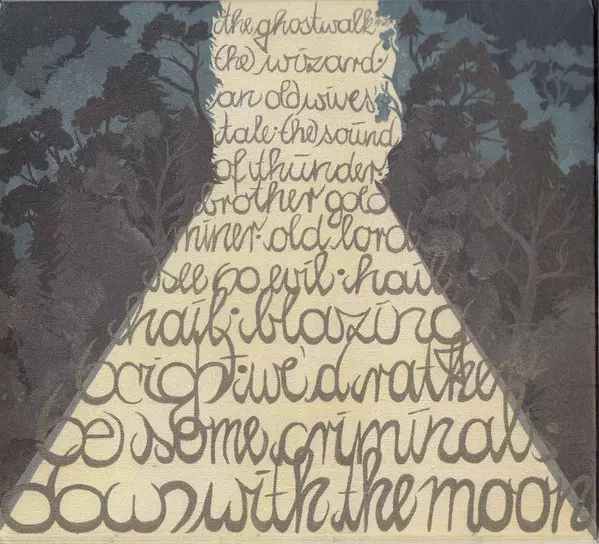 the ghostwalk·
the wizard·
an old wives'
tale·the sound
of thunder·
brother gold
miner·old lord
see no evil·hail
hail·blazing
bright·we'd rather
be some criminals
down with the moon